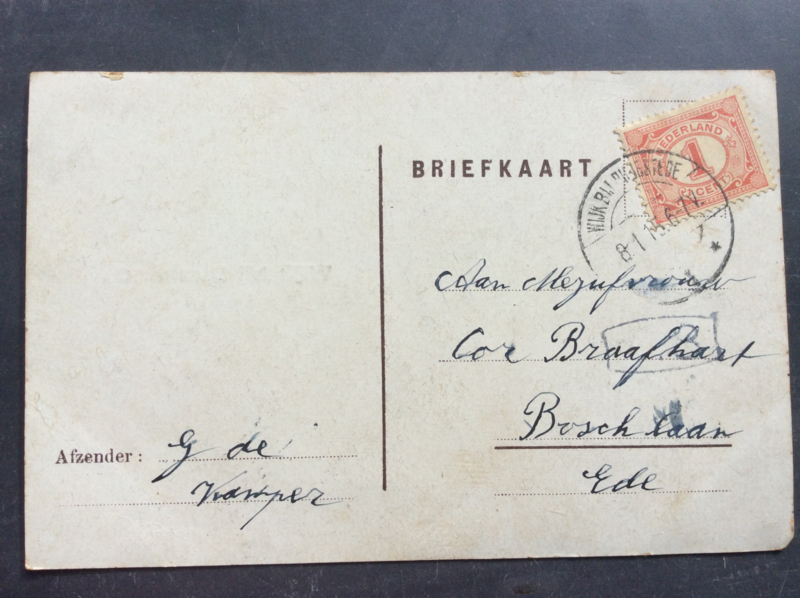 BRIEFKAART
NEDERLAND
1
CENT
WIJK BIJ DUURSTEDE
Aan Mejufvrouw
Cor Braafhart
Boschlaan
Ede
Afzender: G de
Kamper